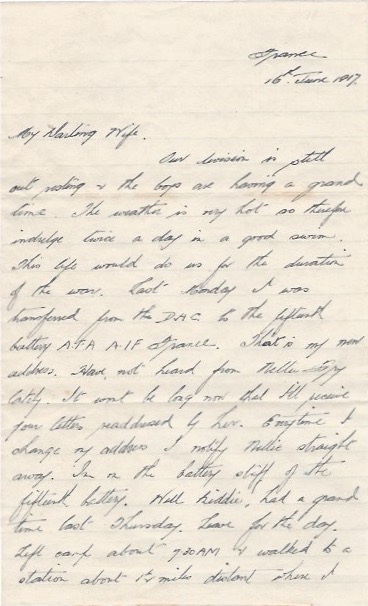 France
16th June 1917.
My Darling Wife.
Our division is still
out resting & the boys are having a grand
time The weather is very hot so therefore
indulge twice a day in a good swim.
This life would do us for the duration
of the war. Last Monday I was
transferred from the D.A.C. to the fifteenth
battery A.F.A A.I.F France. That is my new
address. Have not heard from Nellie
lately. It wont be long now that I'll receive
your letters readdressed by her. Everytime I
change my address I notify Nellie straight
away. Im on the battery staff of the
fifteenth battery. Well Kiddie, had a grand
time last Thursday. Leave for the day.
Left camp about 7.30AM & walked to a
station about miles distant where I